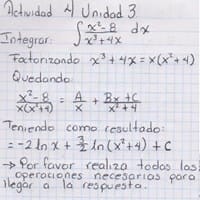 Actividad 4 Unidad 3
Integrar: ∫ x²-8 / x³+4x dx
Factorizando x³+4x = x(x²+4)
Quedando:
x²-8 / x(x²+4) = A / x + Bx+C / x²+4
Teniendo como resultado:
= -2 ln x + 3/2 ln (x²+4) + C
→ Por favor realiza todas las
operaciones necesarias para
llegar a la respuesta.